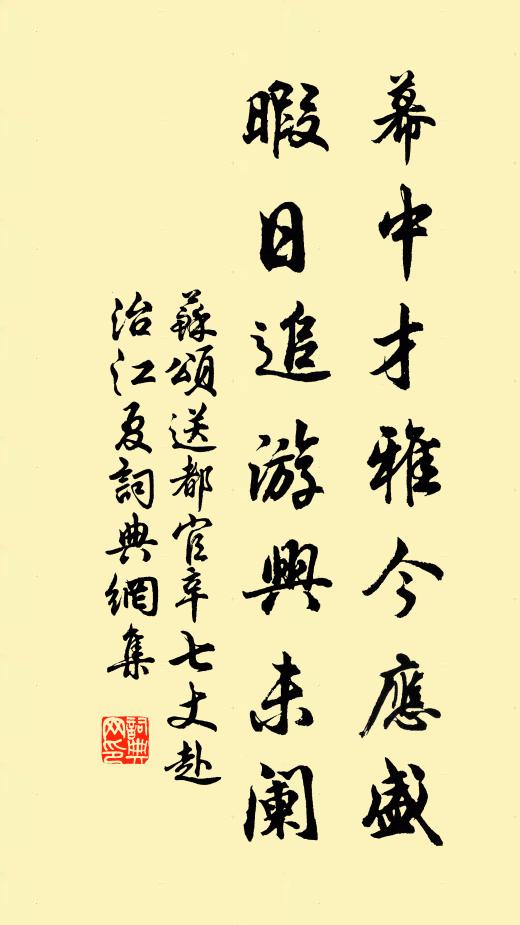 幕中才雅今應盛
暇日追游興未阑
蘇頌送都官辛七丈赴
治江夏詞典網集
詞典
网印